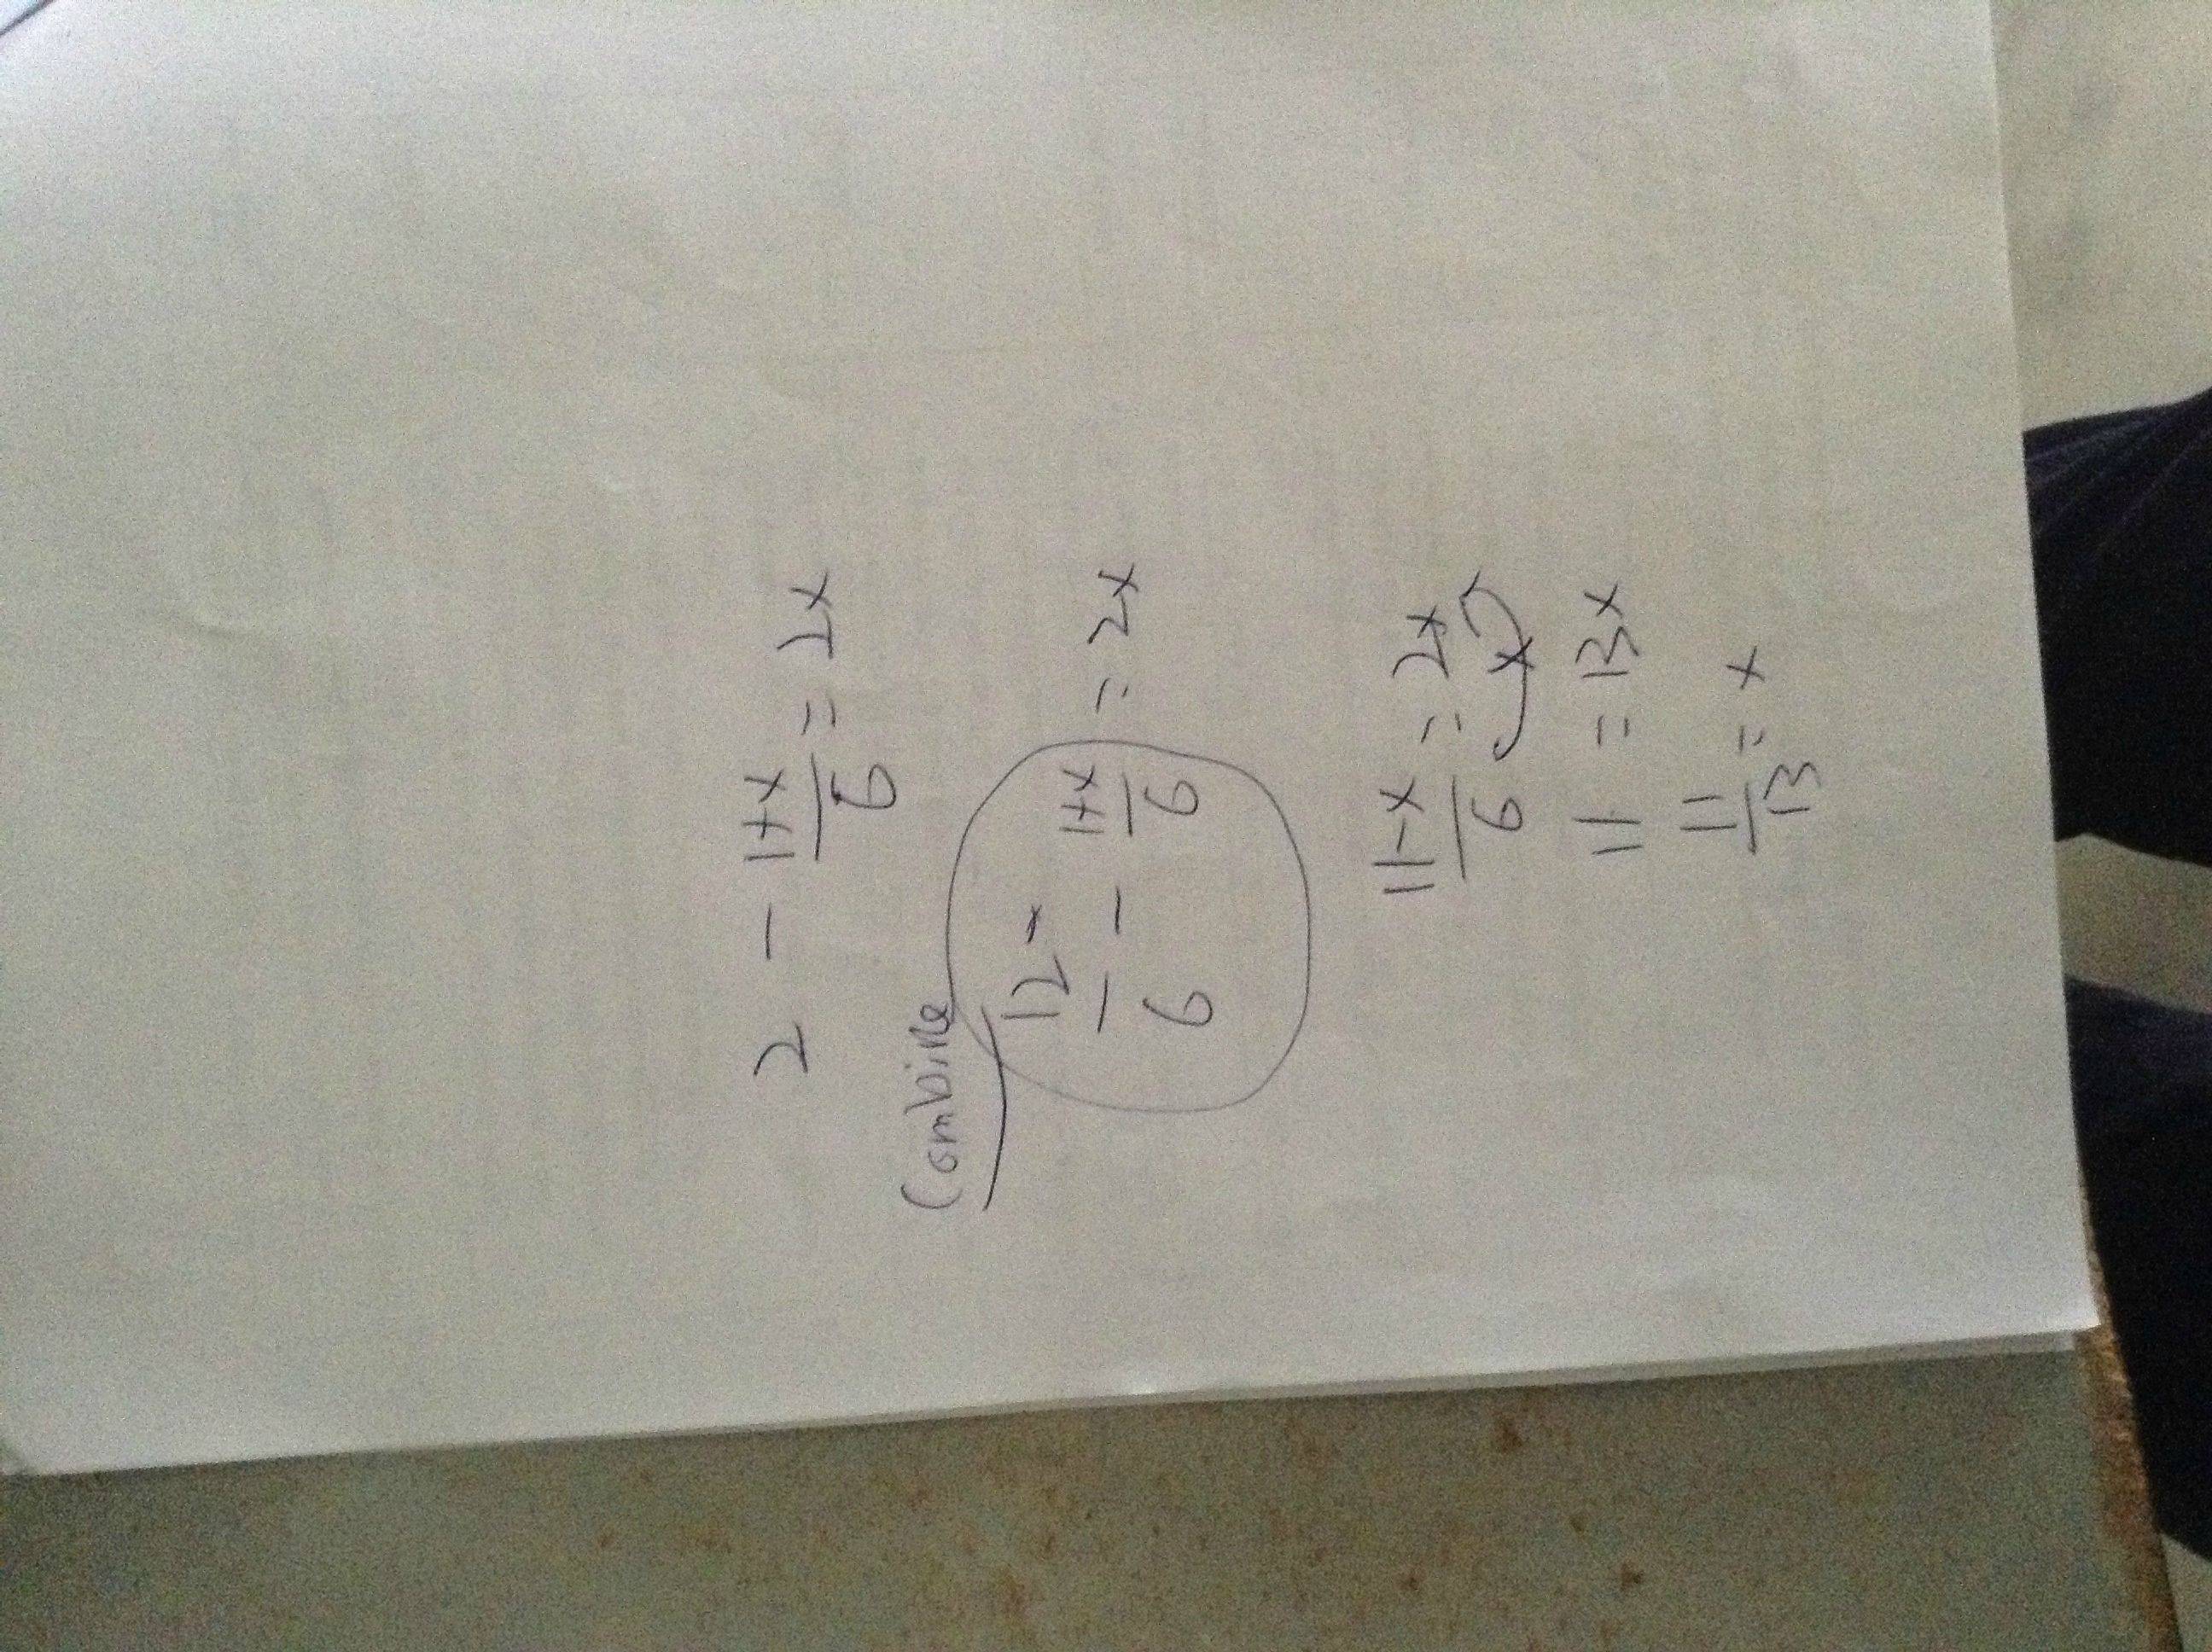 2 - 1+x/6 = 2x
Combine
12/6 - 1+x/6 = 2x
11-x/6 = 2x
11 = 13x
11/13 = x